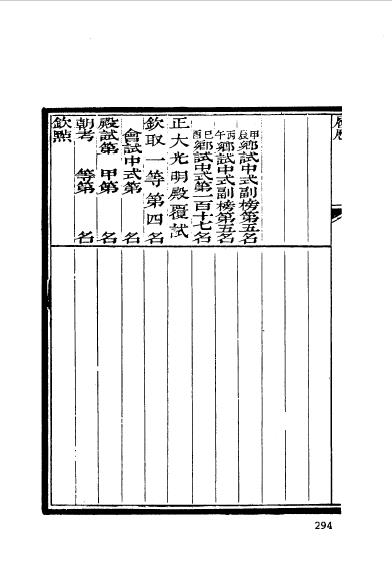 甲辰鄉試中式副榜第五名
丙午鄉試中式副榜第五名
己酉鄉試中式第一百十七名
正大光明殿覆試
欽取一等第四名
會試中式第　名
殿試第　甲第　名
朝考　等第　名
欽點
294